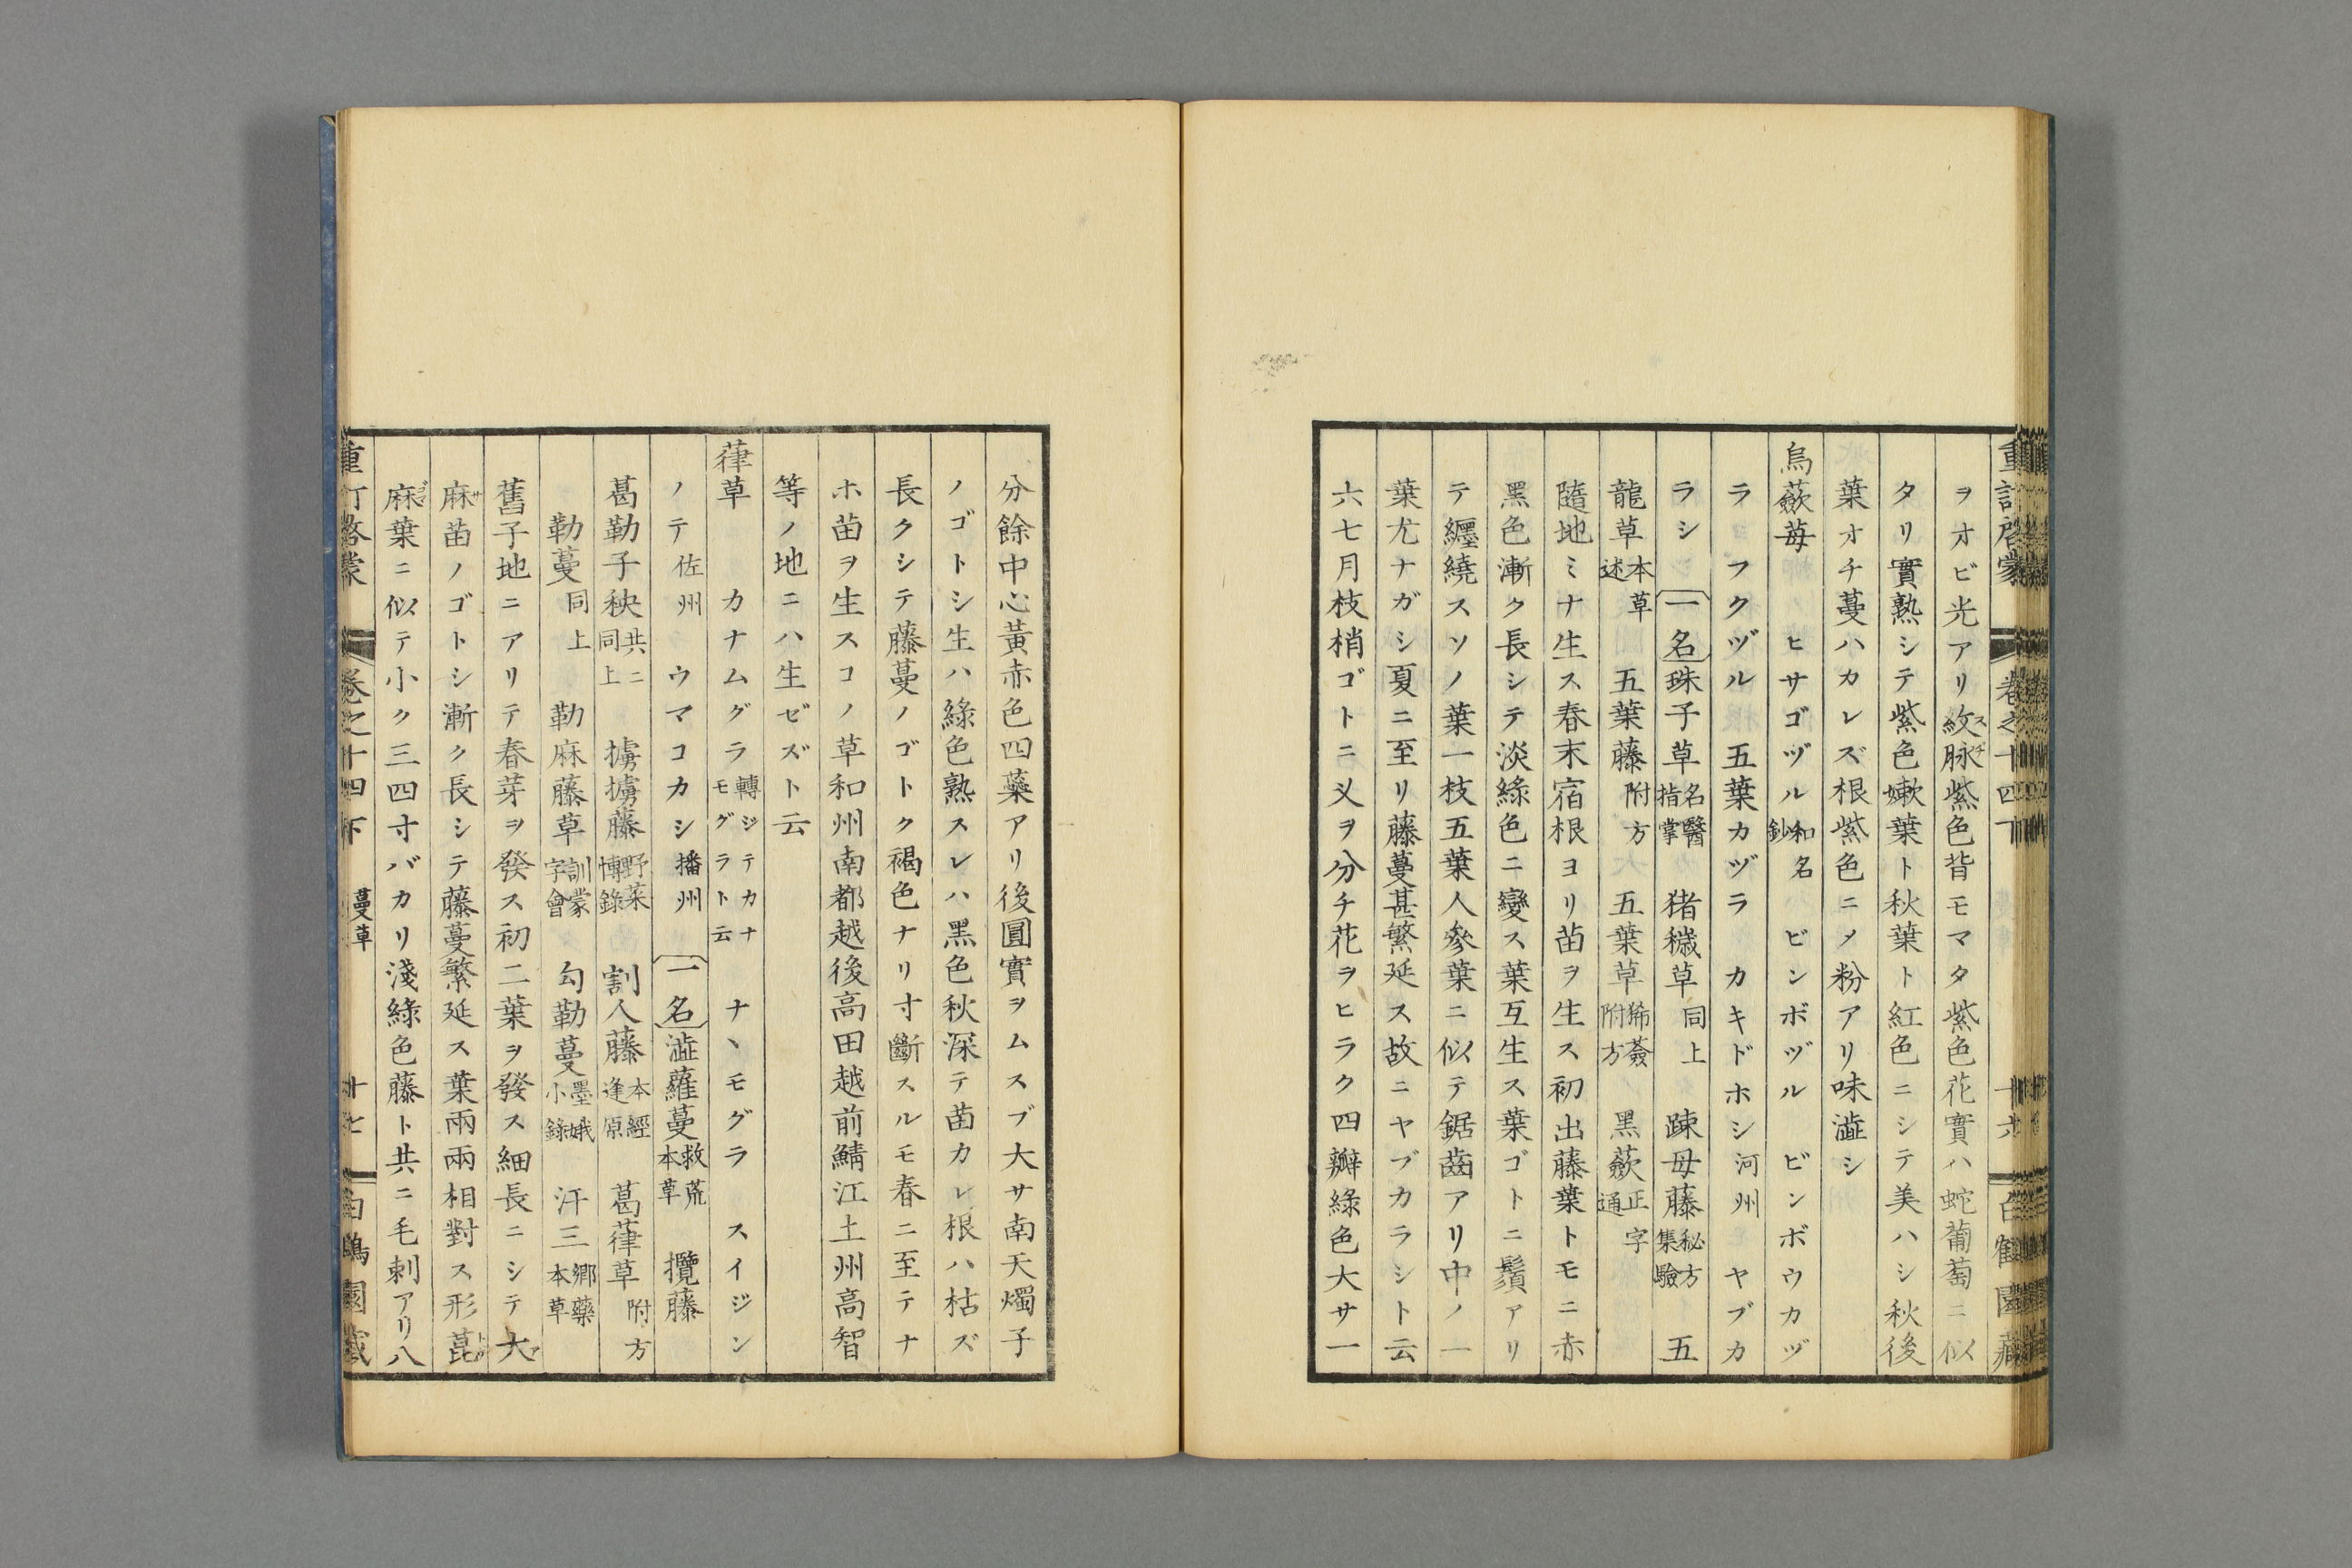 ヲオビ光アリ紋脉スヂ紫色背モマタ紫色花實ハ蛇葡萄ニ似
タリ實熟シテ紫色嫩葉ト秋葉ト紅色ニシテ美ハシ秋後
葉オチ蔓ハカレズ根紫色ニメ粉アリ味澁シ
烏蘞苺 ヒサゴヅル和名鈔 ビンボヅル ビンボウカヅ
ラ フクヅル 五葉カヅラ カキドホシ河州 ヤブカ
ラシ 一名珠子草名醫指掌 猪穢草同上 疎母藤秘方集驗 五
龍草本草述 五葉藤附方 五葉草狶薟附方 黑蘞正字通
隨地ミナ生ス春末宿根ヨリ苗ヲ生ス初出藤葉トモニ赤
黑色漸ク長シテ淡綠色ニ變ス葉互生ス葉ゴトニ鬚アリ
テ纒繞スソノ葉一枝五葉人參葉ニ似テ鋸齒アリ中ノ一
葉尤ナガシ夏ニ至リ藤蔓甚繁延ス故ニヤブカラシト云
六七月枝梢ゴトニ㕛ヲ分チ花ヲヒラク四瓣綠色大サ一
分餘中心黃赤色四蘂アリ後圓實ヲムスブ大サ南天燭子
ノゴトシ生ハ綠色熟スレハ黑色秋深テ苗カレ根ハ枯ズ
長クシテ藤蔓ノゴトク褐色ナリ寸斷スルモ春ニ至テナ
ホ苗ヲ生スコノ草和州南都越後高田越前鯖江土州高智
等ノ地ニハ生ゼズト云
葎草 カナムグラ轉ジテカナモグラト云 ナヽモグラ スイジン
ノテ佐州 ウマコカシ播州 一名澁蘿蔓救荒本草 攬藤
葛勒子秧共ニ同上 擄擄藤野菜博錄 割人藤本經逢原 葛葎草附方
勒蔓同上 勒麻藤草訓蒙字會 勾勒蔓墨娥小錄 汗三鄉藥本草
舊子地ニアリテ春芽ヲ發ス初二葉ヲ發ス細長ニシテ大
麻苗ノゴトシ漸ク長シテ藤蔓繁延ス葉兩兩相對ス形萞
麻葉ニ似テ小ク三四寸バカリ淺綠色藤ト共ニ毛刺アリ八
重訂啓蒙 卷之十四下 蔓草 十七 白鶴園藏